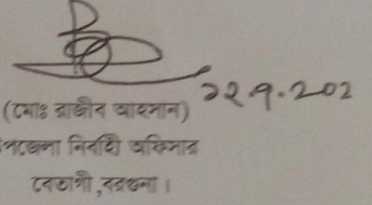 ২২.৭.২০২
(মোঃ রাজীব আহসান)
উপজেলা নির্বাহী অফিসার
বেতাগী, বরগুনা।